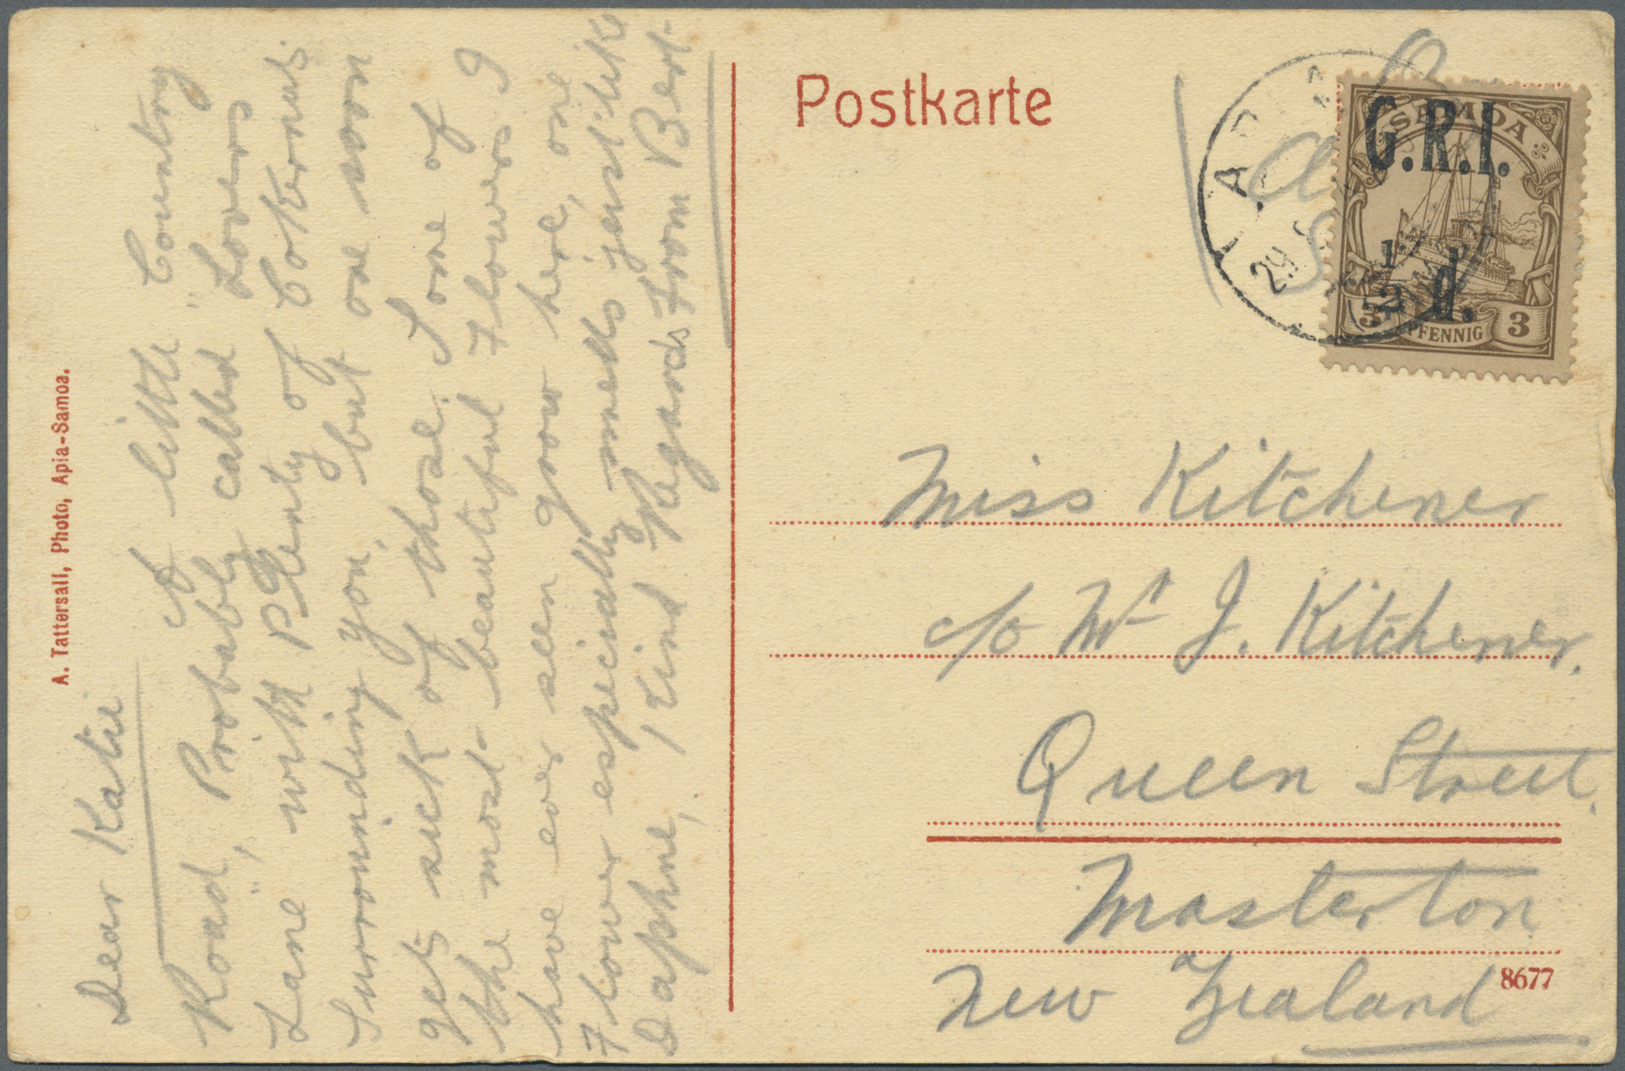 A. Tattersall, Photo, Apia-Samoa.
Dear Katie
A little "Country
Road", Probably called Lovers
Lane with Plenty of Cokernuts
Surrounding you, but one soon
gets sick of those. Some of
the most beautiful Flowers I
have ever seen grow here, one
Flower especially smells just like
Daphne, Kind Regards From Bert.
Postkarte
APIA
29
SAMOA
G.R.I.
1/2 d.
3 PFENNIG 3
Miss Kitchener
c/o Mr J. Kitchener.
Queen Street.
Masterton
New Zealand
8677